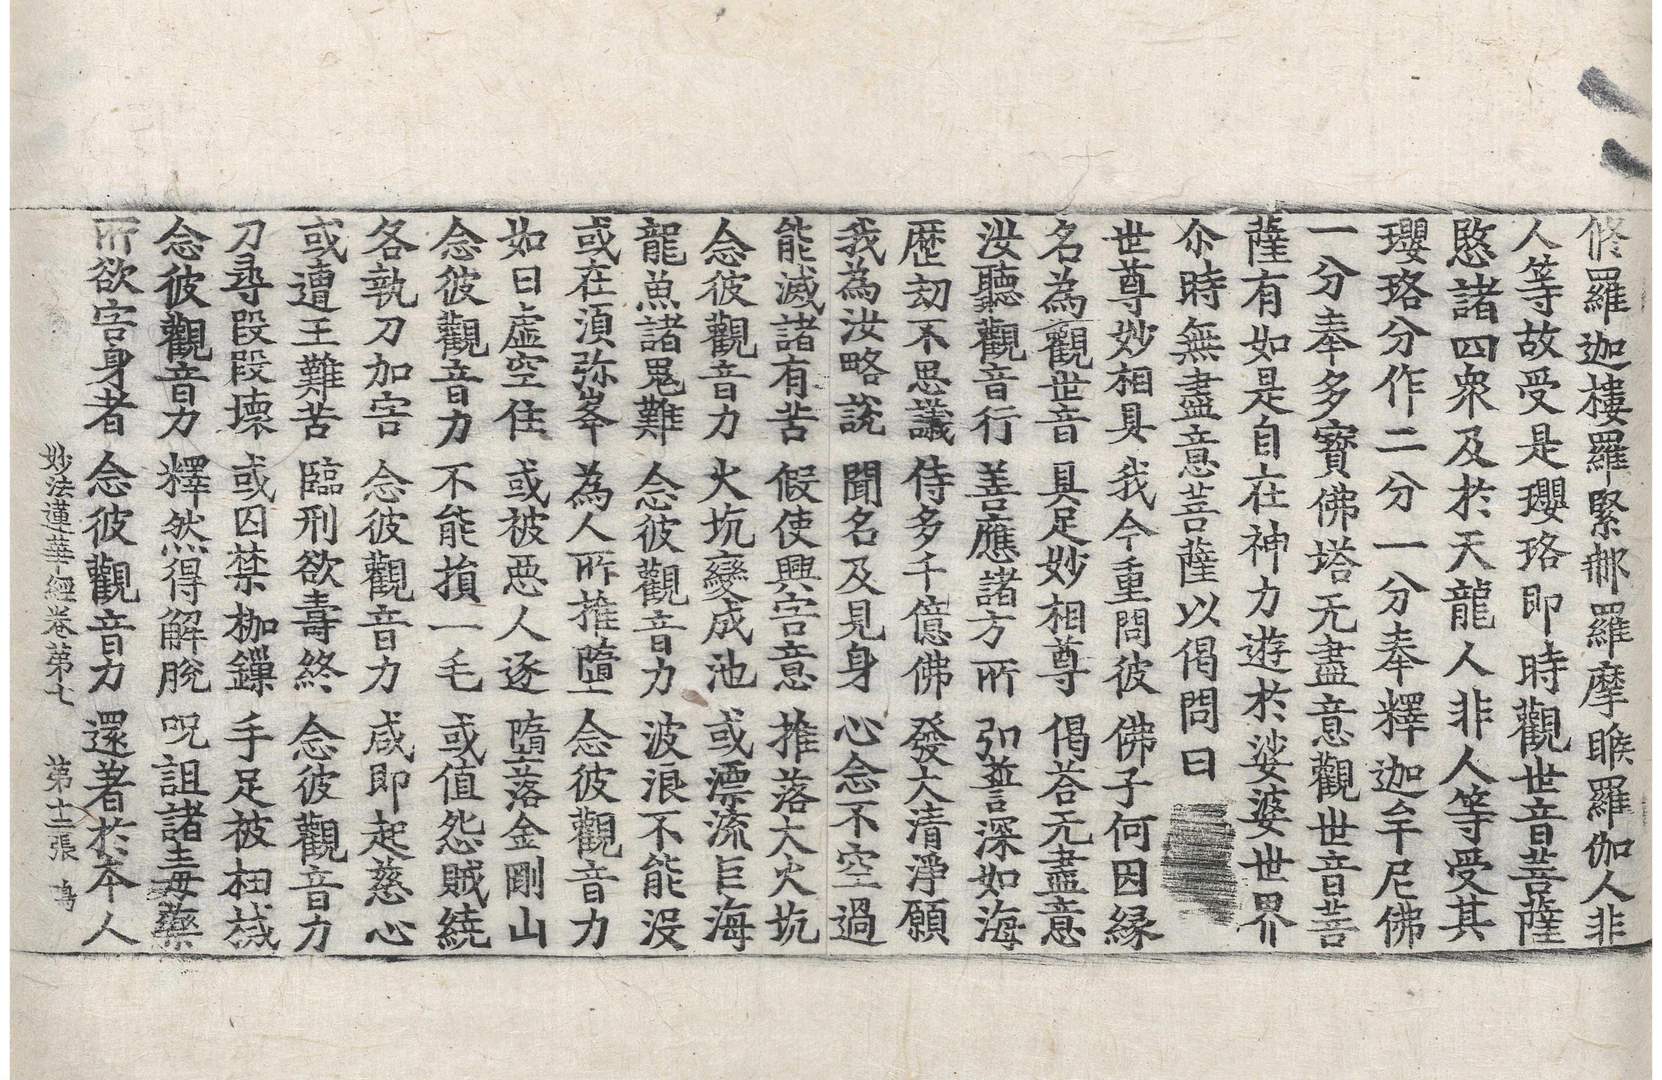 脩羅迦樓羅緊那羅摩睺羅伽人非
人等故受是瓔珞即時觀世音菩薩
愍諸四衆及於天龍人非人等受其
瓔珞分作二分一分奉釋迦牟尼佛
一分奉多寶佛塔无盡意觀世音菩
薩有如是自在神力遊於娑婆世界
尒時無盡意菩薩以偈問曰
世尊妙相具 我今重問彼 佛子何因縁
名為觀世音 具足妙相尊 偈荅无盡意
汝聽觀音行 善應諸方所 弘誓深如海
歷劫不思議 侍多千億佛 發大清淨願
我為汝略説 聞名及見身 心念不空過
能滅諸有苦 假使興害意 推落大火坑
念彼觀音力 火坑變成池 或漂流巨海
龍魚諸鬼難 念彼觀音力 波浪不能没
或在須弥峯 為人所推墮 念彼觀音力
如日虛空住 或被惡人逐 墮落金剛山
念彼觀音力 不能損一毛 或值怨賊繞
各執刀加害 念彼觀音力 咸即起慈心
或遭王難苦 臨刑欲壽終 念彼觀音力
刀尋段段壞 或囚禁枷鏁 手足被杻械
念彼觀音力 釋然得解脫 呪詛諸毒藥
所欲害身者 念彼觀音力 還著於本人
妙法蓮華經卷第七 第十二張